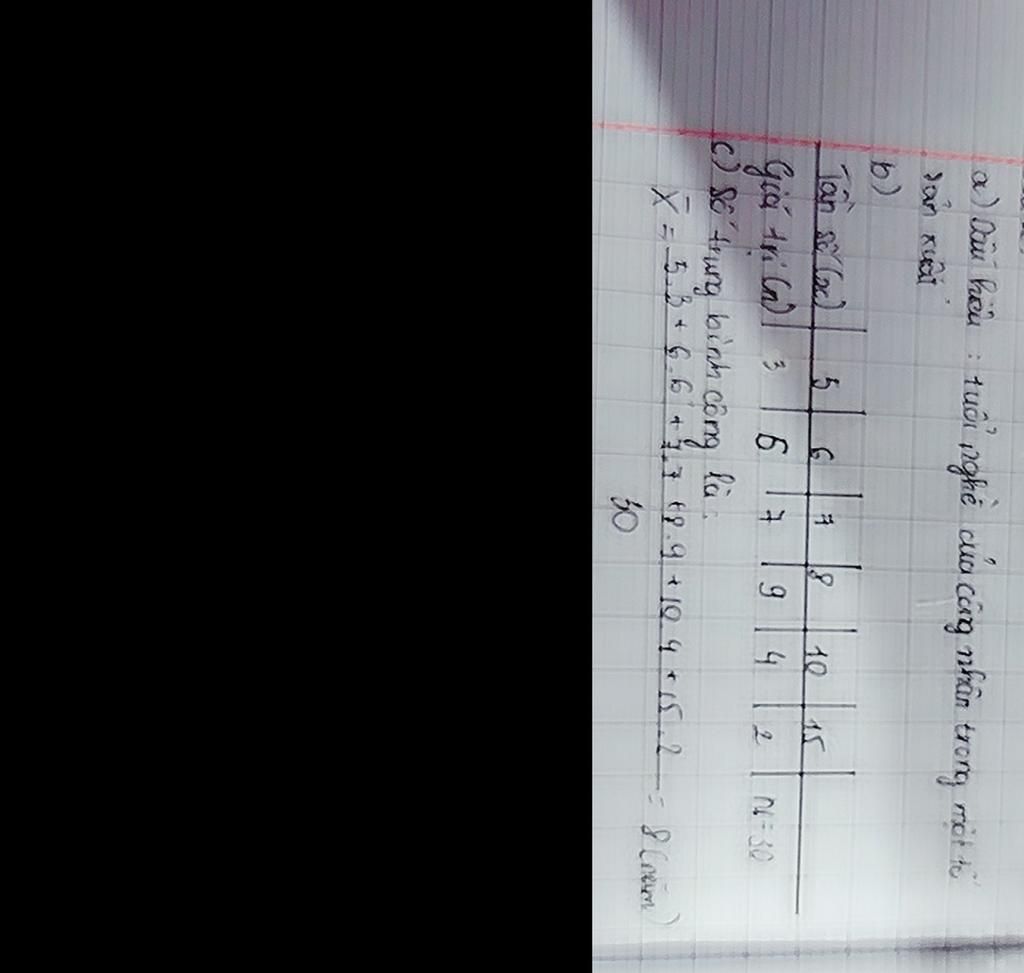 a) Dấu hiệu : tuổi nghề của công nhân trong một tổ
sản xuất
b)
Tần số (x) | 5 | 6 | 7 | 8 | 10 | 15 |
Giá trị (n) | 3 | 6 | 7 | 9 | 4 | 2 | N=30
c) Số trung bình cộng là:
X̄ = 5.3 + 6.6 + 7.7 + 8.9 + 10.4 + 15.2 = 8 (năm)
30